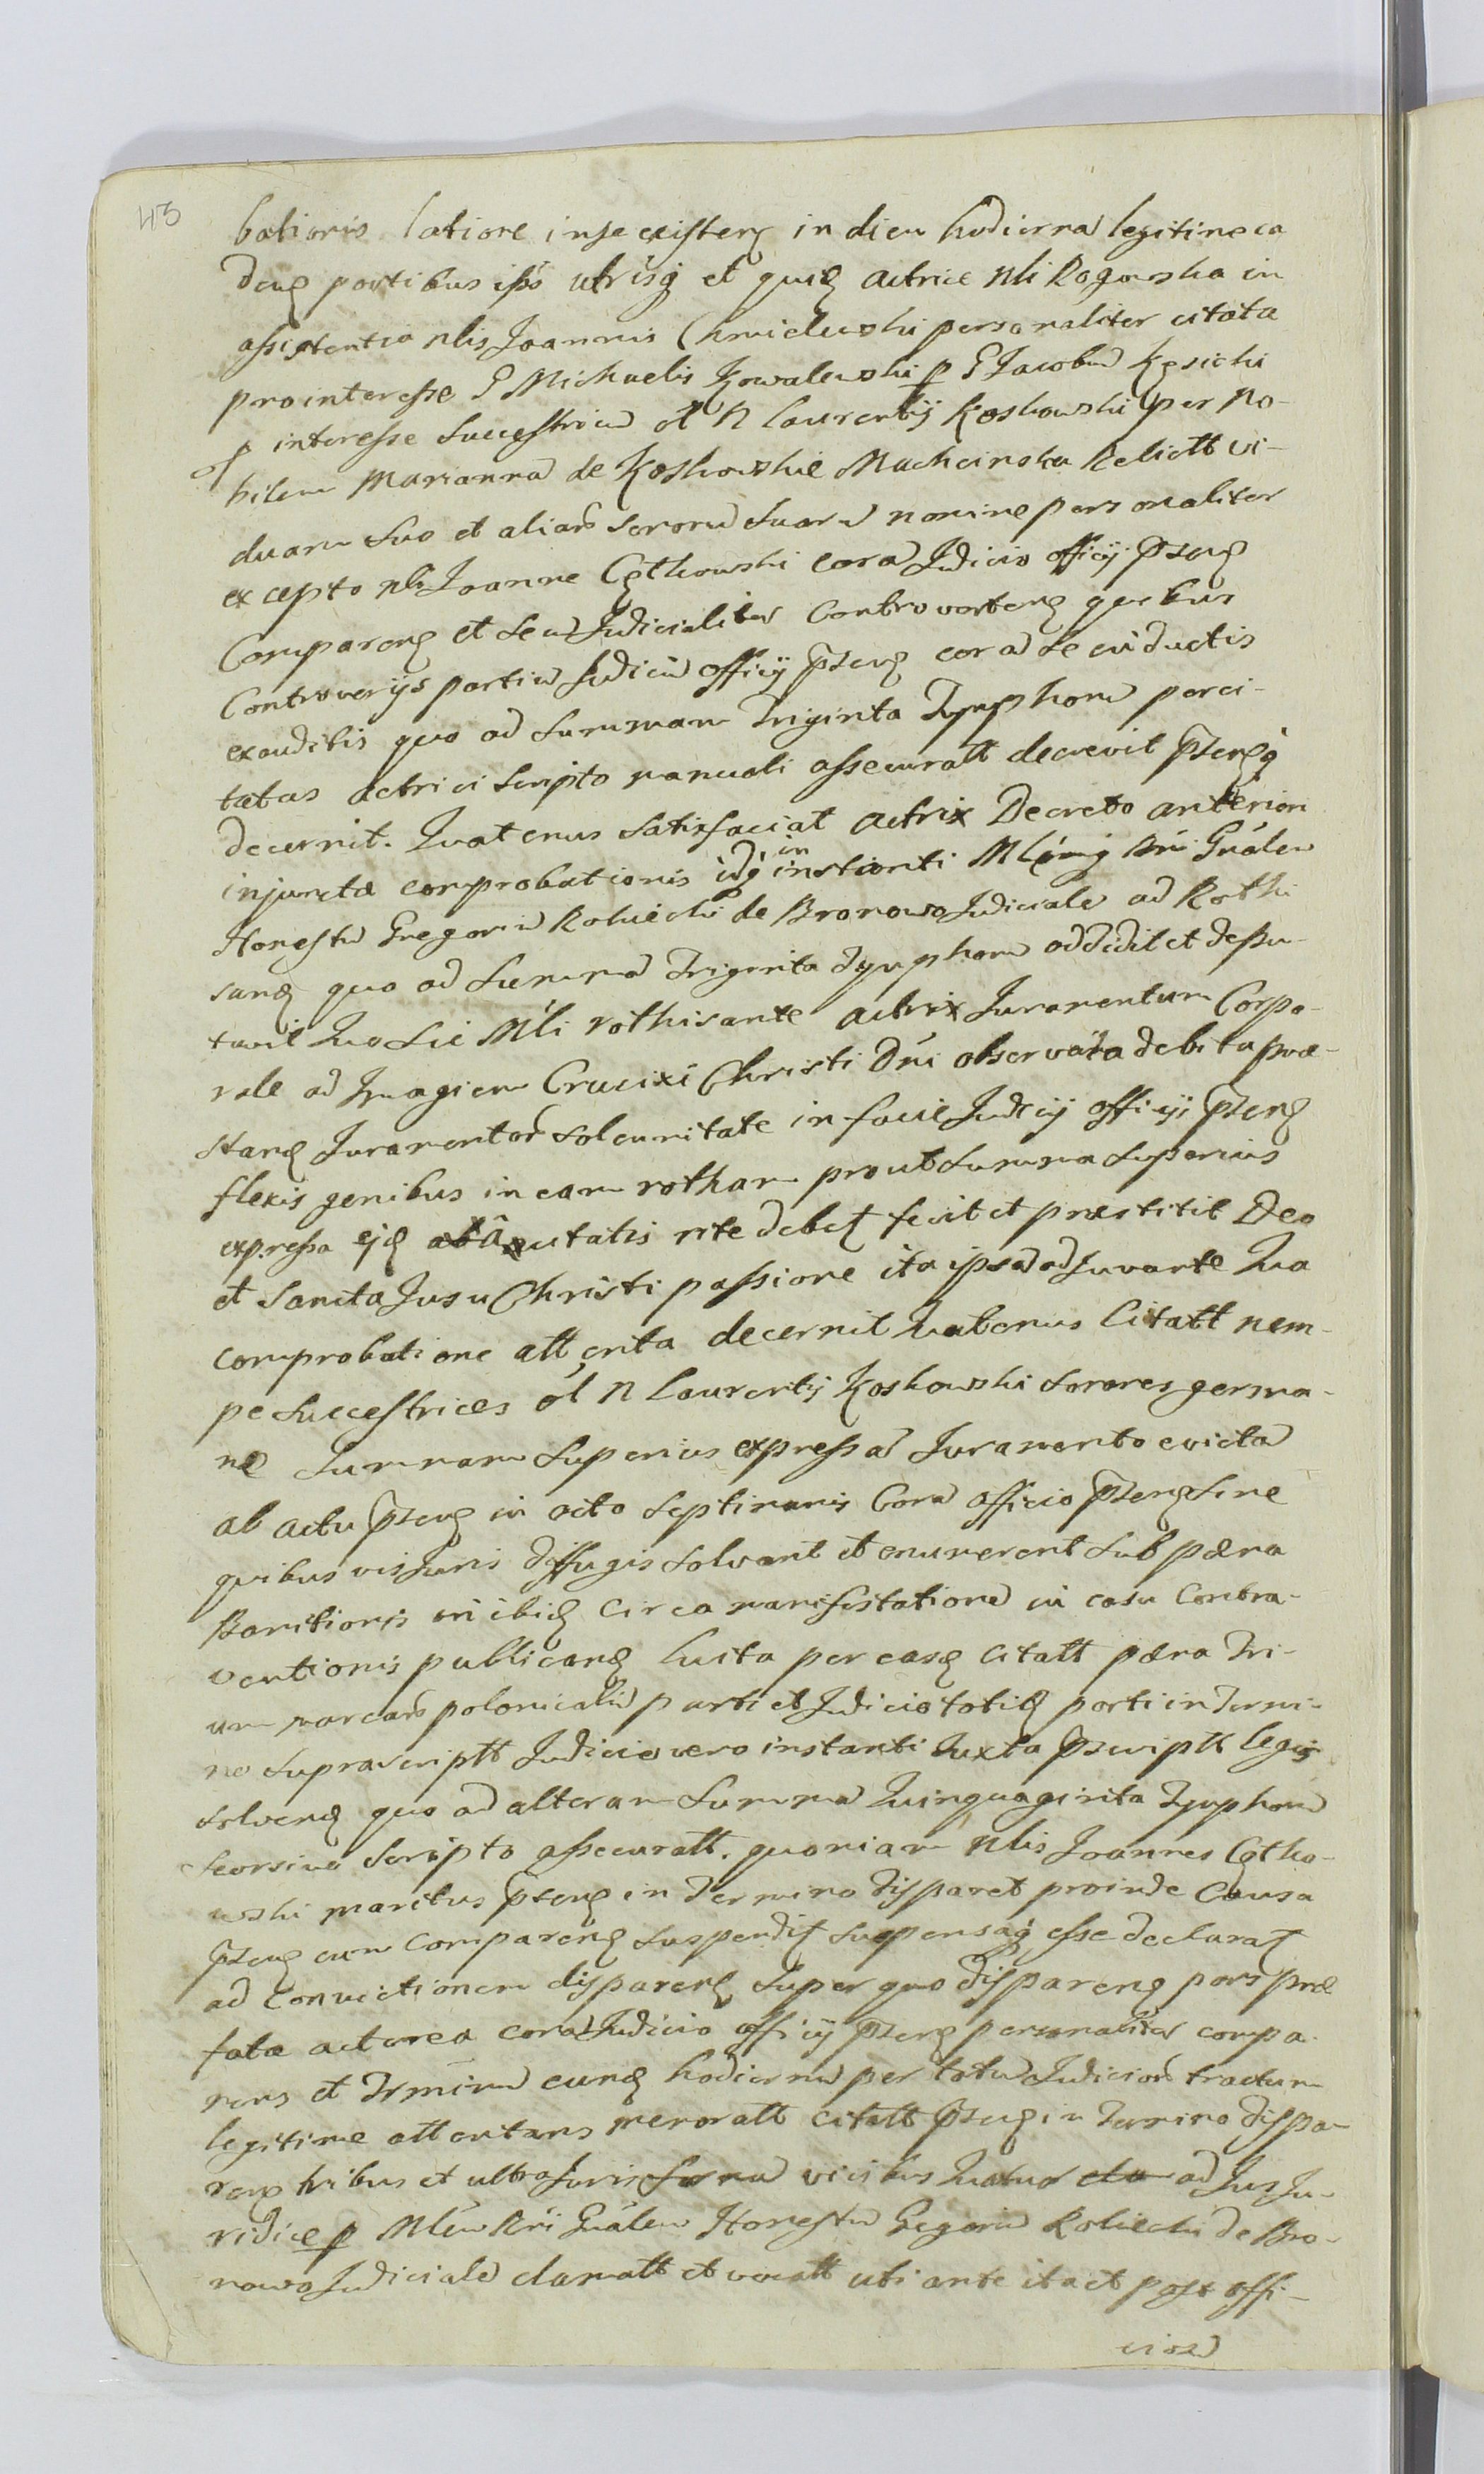 43
bationis latiore in se existen in diem hodierna legitime ca
den partibus ipsis utrisq et quid actrice Nli Rogowska in
assistentia Nlis Joannis Chmielewski personaliter citata
pro interesse G Michaelis Kowalewski p G Jacobum Kęsicki
p interesse Successtricum ol N Laurentij Koskowski per No-
bilem Marianna de Koskowskie Machcinska Relictt vi-
duam suo et aliar sororu suaru nomine personaliter
excepto Nli Joanne Cętkowski cora Judicio officij psen
Comparen et secu Judicialiter Controverten quibus
Controversijs partiu Judiciu officij psen cora se inductis
exauditis quo ad Summam Triginta Tymphonu perci-
tatus actrici scripto manuali assecuratt decrevit psenq
decernit. Quatenus satisfaciat actrix Decreto anteriori
injuncta comprobationis idq in instanti Mlemq Rni Gnalem
Honestu Gregoriu Roluicki de Bronowo Judiciale ad Rothi
sand quo ad Summa Triginta Tymphonu addidit et depu-
tavit Quo sic Mli rothisante actrix Juramentum Corpo-
rale ad Imagiem Crucixi Christi Dni observata debita præ-
stand Juramentor solemnitate in facie Judicij officij psen
flexis genibus in eam rotham prout Summa superius
expressa ejd rite debet fecit et præstitit Deo
et Sancta Jusu Christi passione ita ipsa adjuvante Qua
comprobatione attenta decernit Quatenus Citatt nem-
pe Successtrices ol N Laurentij Koskowski sorores germa-
næ Summam superius expressa Juramento evicta
ab actu psen in octo septimanis Cora officio psen sine
quibusvis Juris diffugis solvant et enumerent sub pæna
Banitionis in ibid circa manifestatione in casu Contra-
ventionis publicand luita per easd Citatt pæna Tri-
um marcar polonicaliu parti et Judicio totid parti in Termi-
no suprascriptt Judicio vero instanti Juxta pscriptt legis
solvend quo ad alteram Summa Quinquaginta Tymphonu
seorsivo Scripto assecuratt. quoniam Nlis Joannes Cętko-
wski maritus psen in Termino disparet proinde Causa
psen cum comparen suspendit suspensaq esse declarat
ad Convictionem disparen super quo disparen pars præ
fata actorea cora Judicio officij psen personaliter compa-
rens et Terminu eund hodiernu per totu Judicior tractum
legitime attentans memoratt citatt psen in Termino dispa-
ren tribus et ultra Juris forma vicibus ad Jus Ju-
ridice p Mlem Rni Gnalem Honestu Gregoriu Roluicki de Bro-
nowo Judiciale clamatt et vocatt uti ante ita et post offi-
ciosa